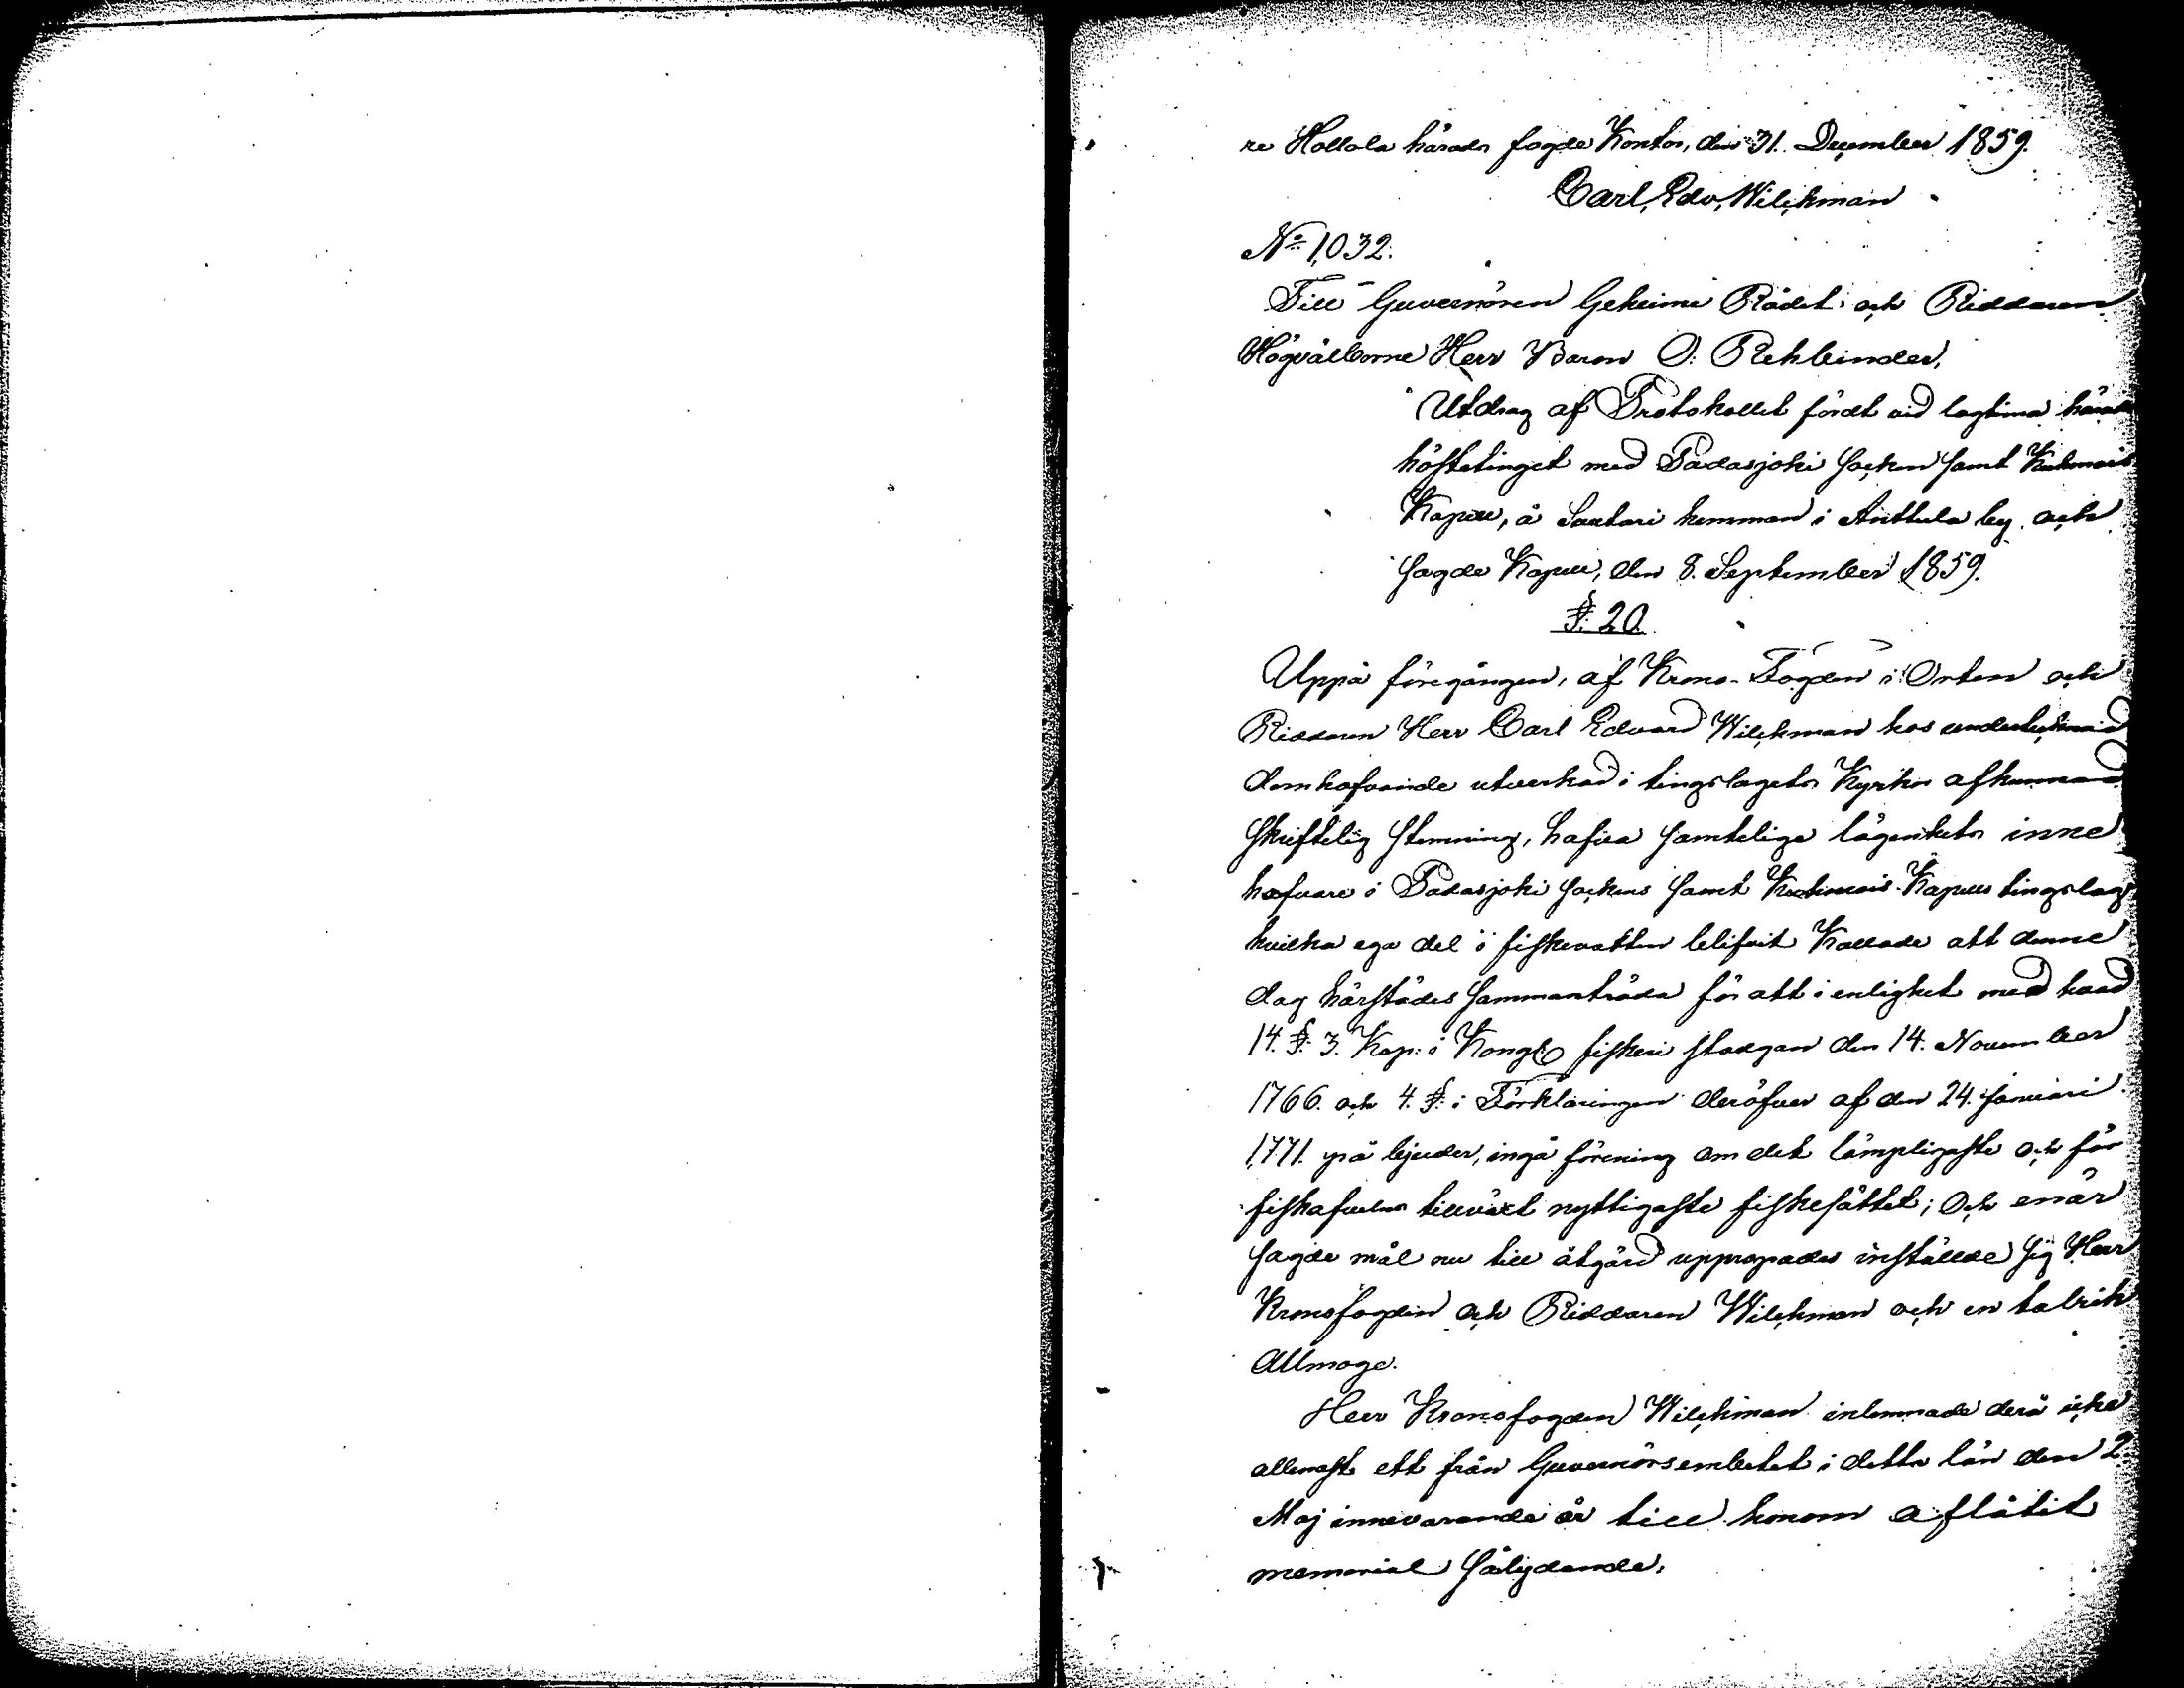 re Hollola härads fogde Kontor, den 31. December 1859.
Carl, Edv, Wilckman
No 1,032.
Till Guvernören Geheime Rådet och Riddaren
Högvälborne Herr Baron O: Rehbinder,
Utdrag af Protokollet fördt vid lagtima härads
hösttinget med Padasjoki Socken samt Kuhmois
Kapell, å Sautari hemman i Anttula by och
sagde Kapell, den 8. September 1859.
§: 20.
Uppå föregången, af Krono-Fogden i Orten och
Riddaren Herr Carl Edvard Wilckman hos undertecknad
domhafvande utverkad i tingslagets Kyrkor afkunnad
skriftelig stemning, hafva samtelige lägenhets inne
hafvare i Padasjoki Sockens samt Kuhmois Kapells tingslag
hvilka ega del i fiskevatten blifvit Kallade att denne
dag härstädes sammanträda för att i enlighet med hvad
14. §: 3. Kap: i Kongl. fiskeri stadgan den 14. November
1766. och 4. §: i Förklaringen deröfver af den 24. Januari
1771. på bjuder, ingå förening om det lämpligaste och för
fiskafvelns tillväxt nyttigaste fiskesättet; Och enär
sagde mål nu till åtgärd uppropades inställde sig Herr
Kronofogden och Riddaren Wilckman och en talrik
Allmoge.
Herr Kronofogden Wilckman inlemnade derå icke
allenast ett från Guvernörsembetet i detta län den 2.
Maj innevarande år till honom aflåtit
memorial sålydande,